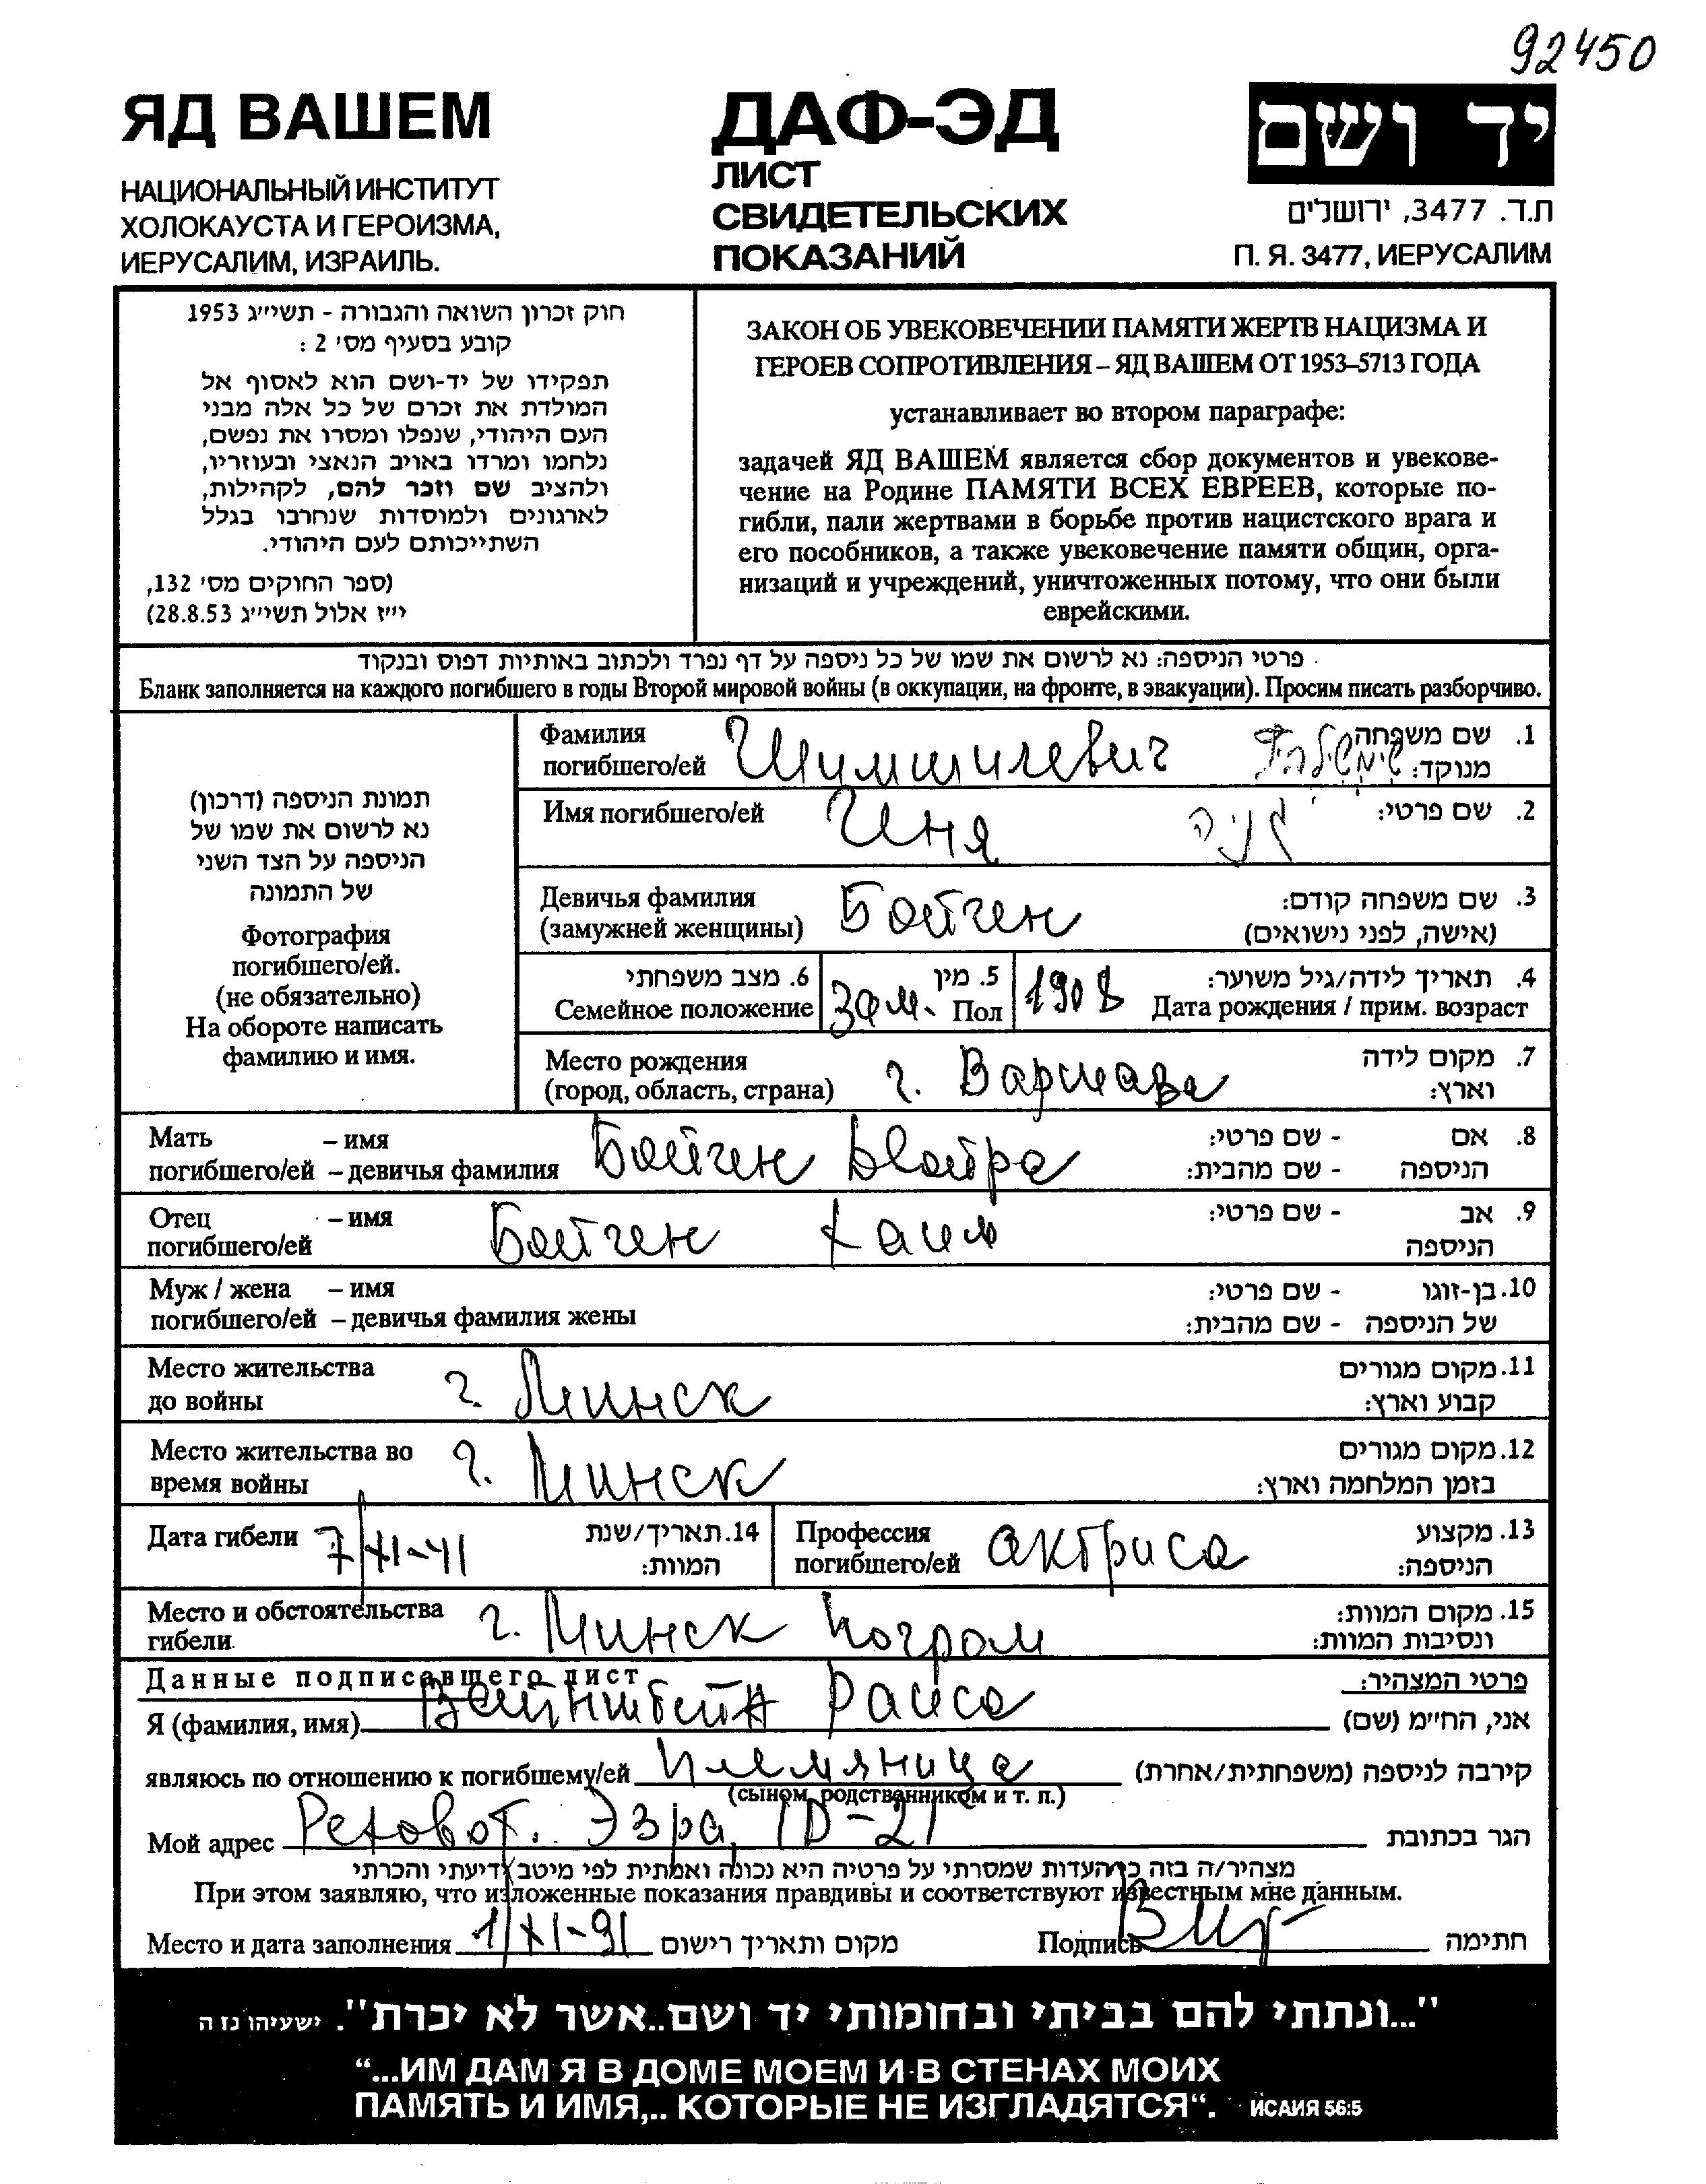 92450
ЯД ВАШЕМ
НАЦИОНАЛЬНЫЙ ИНСТИТУТ
ХОЛОКАУСТА И ГЕРОИЗМА,
ИЕРУСАЛИМ, ИЗРАИЛЬ.
ДАФ-ЭД
ЛИСТ
СВИДЕТЕЛЬСКИХ
ПОКАЗАНИЙ
יד ושם
ת.ד. 3477, ירושלים
П. Я. 3477, ИЕРУСАЛИМ
חוק זכרון השואה והגבורה - תשי״ג 1953
קובע בסעיף מס׳ 2 :
תפקידו של יד-ושם הוא לאסוף אל
המולדת את זכרם של כל אלה מבני
העם היהודי, שנפלו ומסרו את נפשם,
נלחמו ומרדו באויב הנאצי ובעוזריו,
ולהציב שם וזכר להם, לקהילות,
לארגונים ולמוסדות שנחרבו בגלל
השתייכותם לעם היהודי.
(ספר החוקים מס׳ 132,
י״ז אלול תשי״ג 28.8.53)
ЗАКОН ОБ УВЕКОВЕЧЕНИИ ПАМЯТИ ЖЕРТВ НАЦИЗМА И
ГЕРОЕВ СОПРОТИВЛЕНИЯ – ЯД ВАШЕМ ОТ 1953–5713 ГОДА
устанавливает во втором параграфе:
задачей ЯД ВАШЕМ является сбор документов и увекове-
чение на Родине ПАМЯТИ ВСЕХ ЕВРЕЕВ, которые по-
гибли, пали жертвами в борьбе против нацистского врага и
его пособников, а также увековечение памяти общин, орга-
низаций и учреждений, уничтоженных потому, что они были
еврейскими.
פרטי הניספה: נא לרשום את שמו של כל ניספה על דף נפרד ולכתוב באותיות דפוס ובנקוד
Бланк заполняется на каждого погибшего в годы Второй мировой войны (в оккупации, на фронте, в эвакуации). Просим писать разборчиво.
תמונת הניספה (דרכון)
נא לרשום את שמו של
הניספה על הצד השני
של התמונה
Фотография
погибшего/ей.
(не обязательно)
На обороте написать
фамилию и имя.
Фамилия
погибшего/ей Шумшилевич
1. שם משפחה
מנוקד:
Имя погибшего/ей Иня
2. שם פרטי:
Девичья фамилия
(замужней женщины) Бойген
3. שם משפחה קודם:
(אישה, לפני נישואים)
6. מצב משפחתי
Семейное положение зам.
5. מין
Пол
1908
4. תאריך לידה/גיל משוער:
Дата рождения / прим. возраст
Место рождения
(город, область, страна) г. Варшава
7. מקום לידה
וארץ:
Мать – имя
погибшего/ей – девичья фамилия Бойген
8. אם - שם פרטי:
הניספה - שם מהבית:
Отец – имя
погибшего/ей Бойген Хаим
9. אב - שם פרטי:
הניספה
Муж / жена – имя
погибшего/ей – девичья фамилия жены
10. בן-זוגו - שם פרטי:
של הניספה - שם מהבית:
Место жительства
до войны г. Минск
11. מקום מגורים
קבוע וארץ:
Место жительства во
время войны г. Минск
12. מקום מגורים
בזמן המלחמה וארץ:
Дата гибели 7/XI-41
14. תאריך/שנת
המוות:
Профессия
погибшего/ей актриса
13. מקצוע
הניספה:
Место и обстоятельства
гибели г. Минск погром
15. מקום המוות:
ונסיבות המוות:
Данные подписавшего лист
פרטי המצהיר:
Я (фамилия, имя) Вейнштейн Раиса
אני, הח״מ (שם)
являюсь по отношению к погибшему/ей племяница
קירבה לניספה (משפחתית/אחרת)
(сыном, родственником и т. п.)
Мой адрес Реховот. Эзра 1D-21
הגר בכתובת
מצהיר/ה בזה כי העדות שמסרתי על פרטיה היא נכונה ואמתית לפי מיטב ידיעתי והכרתי
При этом заявляю, что изложенные показания правдивы и соответствуют известным мне данным.
Место и дата заполнения 1/XI-91 מקום ותאריך רישום
Подпись
חתימה
"...ונתתי להם בביתי ובחומותי יד ושם..אשר לא יכרת". ישעיהו נז ה
“...ИМ ДАМ Я В ДОМЕ МОЕМ И В СТЕНАХ МОИХ
ПАМЯТЬ И ИМЯ,.. КОТОРЫЕ НЕ ИЗГЛАДЯТСЯ“. ИСАИЯ 56:5